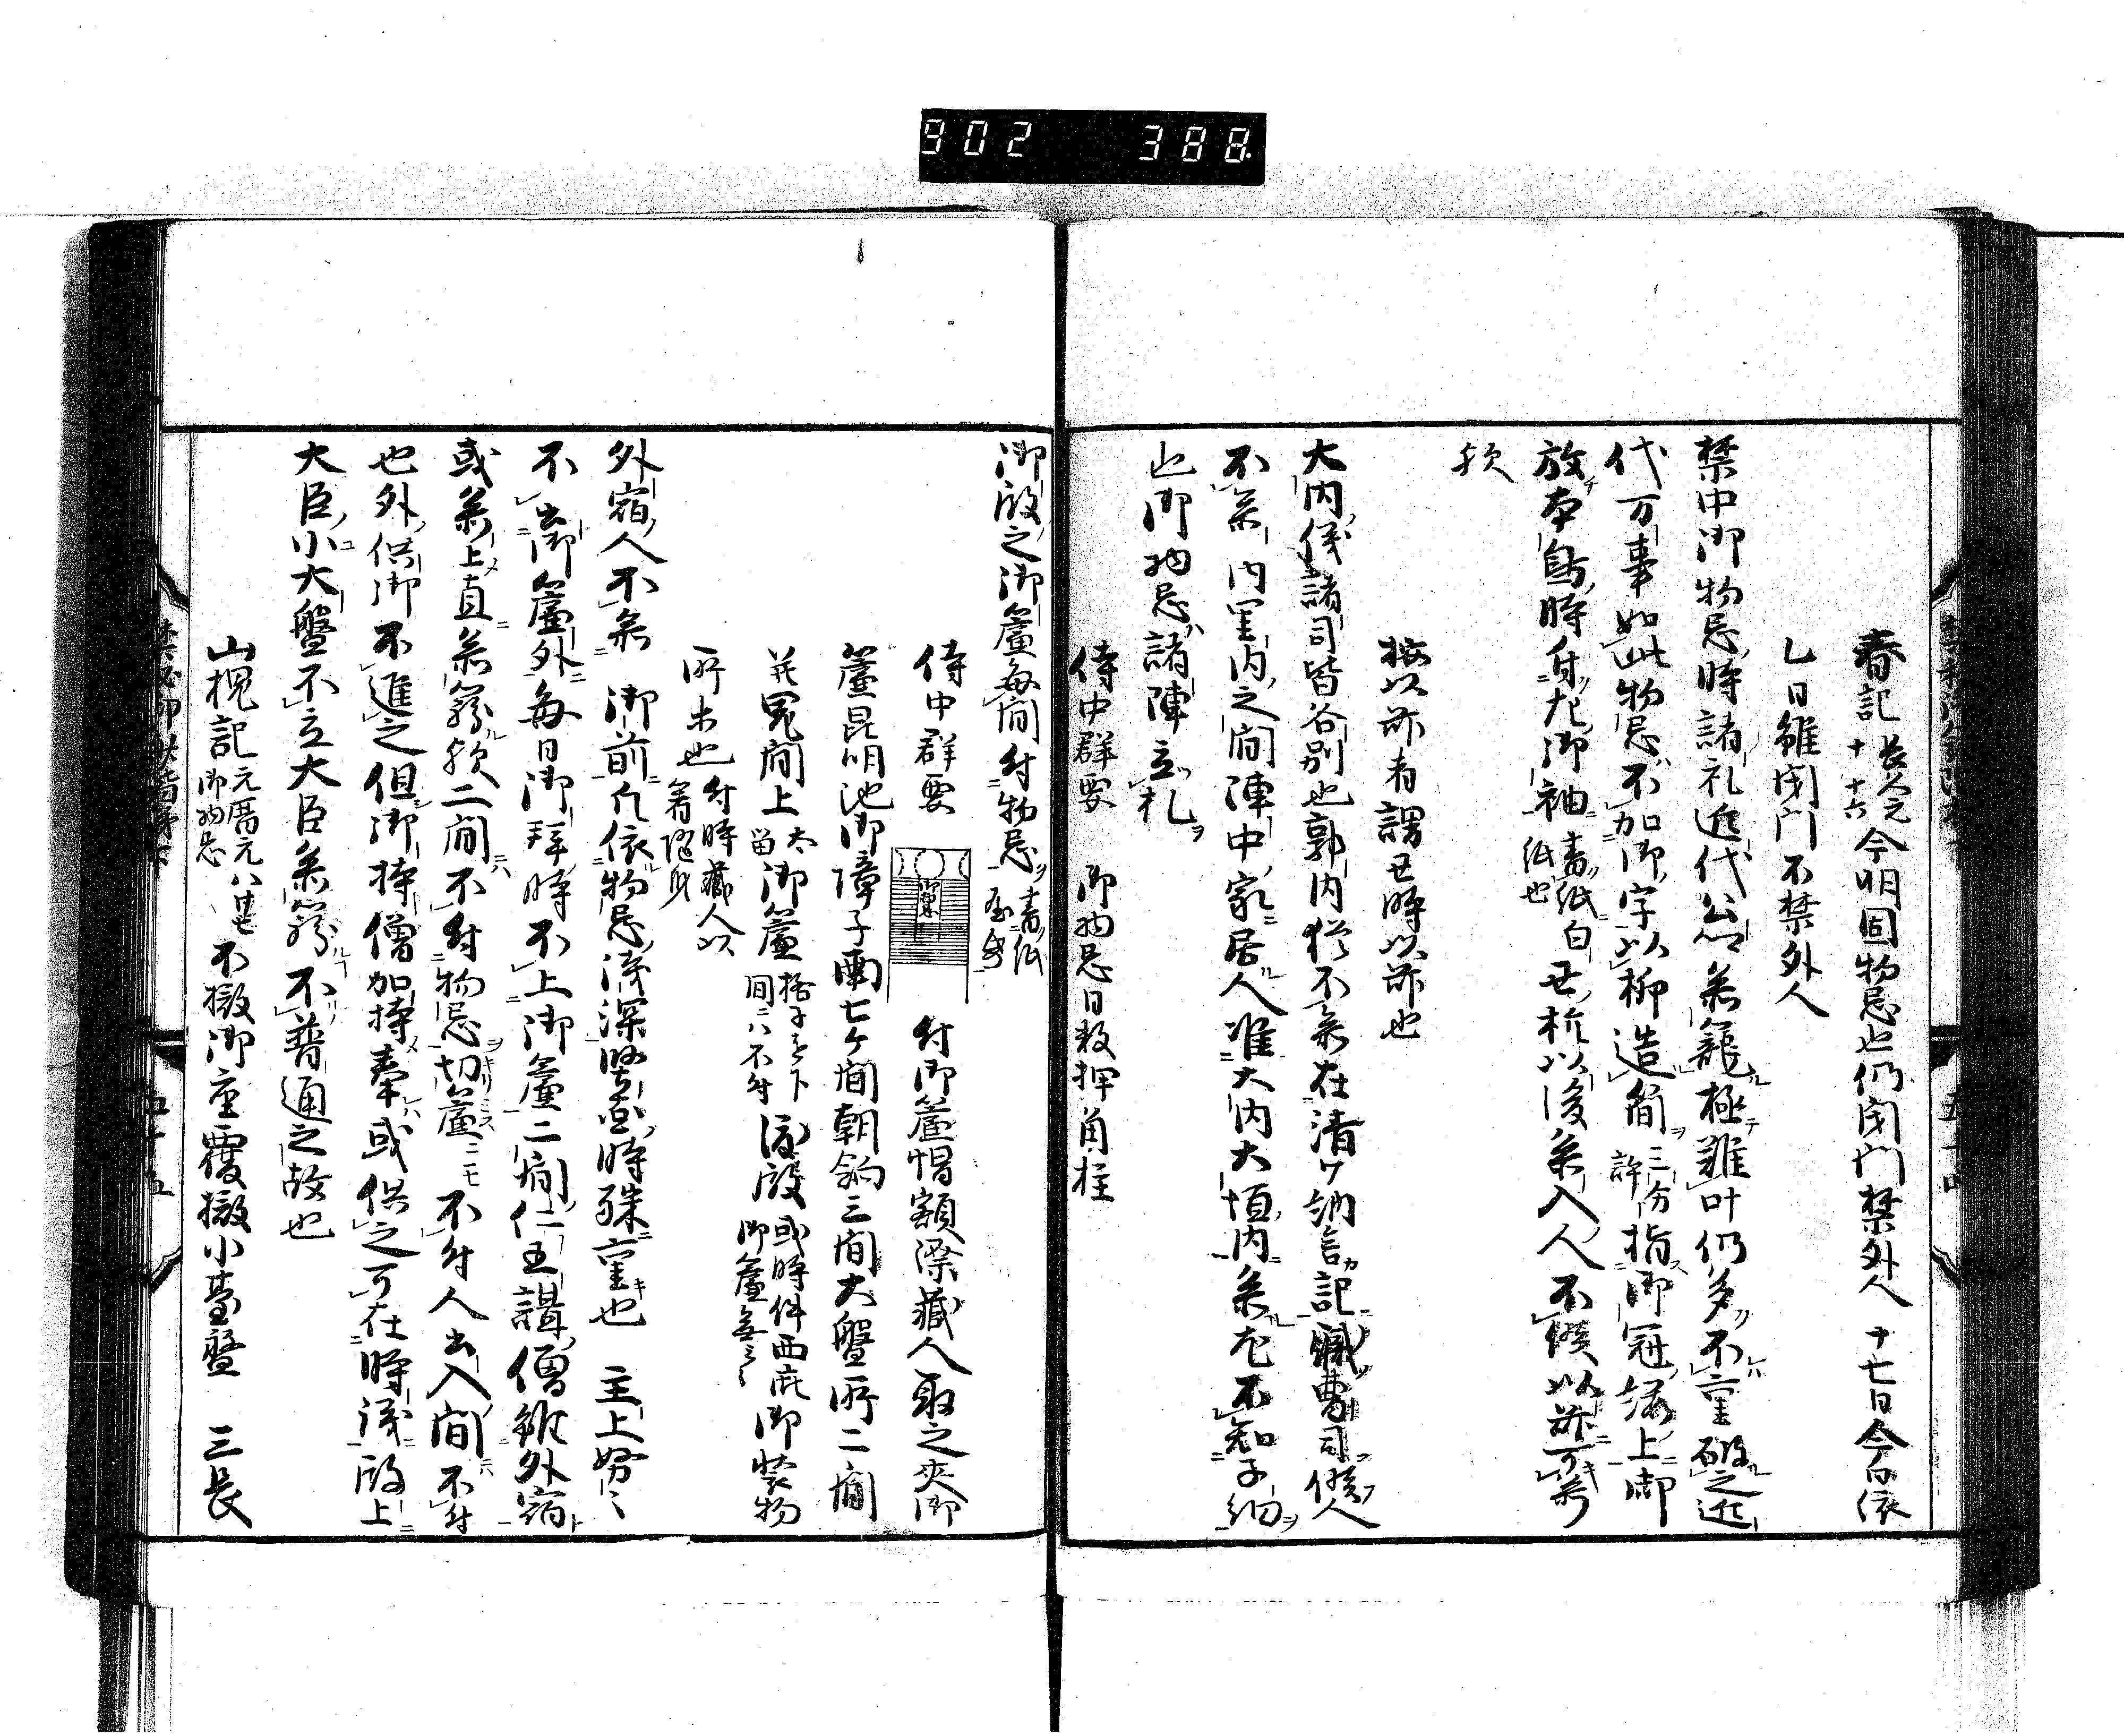 902 388
春記 長久元 十 十六 今明固物忌也仍閉門禁外人 十七日今日依
乙日雖閉門不禁外人
禁中御物忌時諸礼近代公卿参籠極難叶仍多不重破之近
代万事如此物忌不加御字以柳造簡三分許指御冠纓上御
放本鳥時付左御袖 書紙白 紙也 丑杭以後参入人不候以前可参
歟
按以前者謂丑時以前也
大内儀諸司皆各別也郭内猶不参在清少納言記職曹司候人
不参内里内之間陣中家居人准大内大垣内参尤不知子細
也御物忌諸陣立札
侍中群要 御物忌日救押角柱
御殿之御簾毎間付物忌 書紙
侍中群要 御物忌 付御簾帽額際蔵人取之夾御
簾昆明池御障子南七ケ間朝餉三間大盤所二間
并鬼間上 御簾 格子を下 間ニハ不付 後殿 或時件西庇 御簾無之 御装物
所未也 付時蔵人以 着隨身
外宿人不参 御前凡依物忌浅深堅固時殊重也 主上努々
不出御簾外毎日御拜時不上御簾二間仁王講僧雖外宿
或参上直参籠歟二間不付物忌切簾ニモ不付人出入間不付
也外供御不進之但御持僧加持奉或供之可在時議殿上
大臣小大盤不立大臣参籠不普通之故也
山槐記 元暦元八廿七 御物忌 不撤御座覆撤小臺盤 三長
五十五